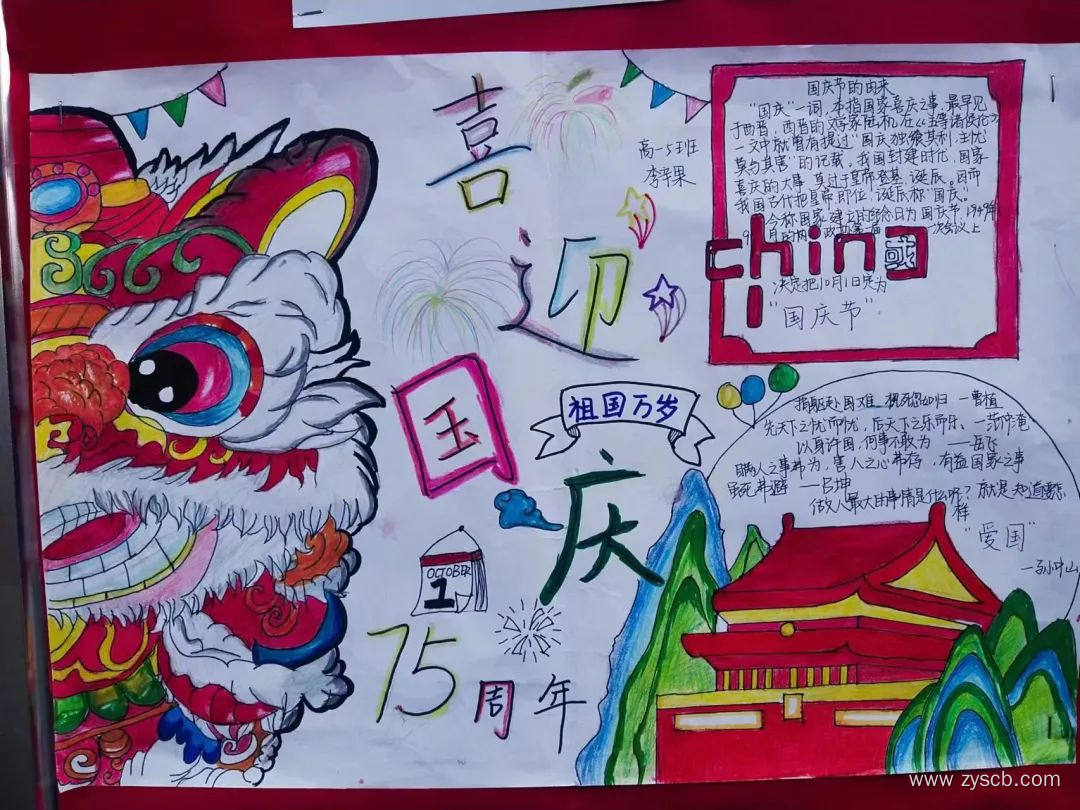 喜迎国庆
75周年
高一5班
李辛果
OCTOBER
1
祖国万岁
国庆节的由来
"国庆"一词,本指国家喜庆之事,最早见
于西晋,西晋的文学家陆机在《五等诸侯论》
一文中就曾有提过"国庆独飨其利,主忧
莫与其害"的记载,我国封建时代,国家
喜庆的大事,莫过于皇帝登基,诞辰。因而
我国古代把皇帝即位,诞辰称"国庆"。
今称国家建立的纪念日为国庆节,1949年
次会议上
china
國
决定把10月1日定为
"国庆节"
捐躯赴国难 视死忽如归 一曹植
先天下之忧而忧,后天下之乐而乐、一范仲淹
以身许国,何事不敢为 一岳飞
瞒人之事弗为,害人之心弗存,有益国家之事
虽死弗避 一吕坤
做人最大的事情是什么呢?就是知道怎
样
"爱国"
一孙中山
www.zyscb.com